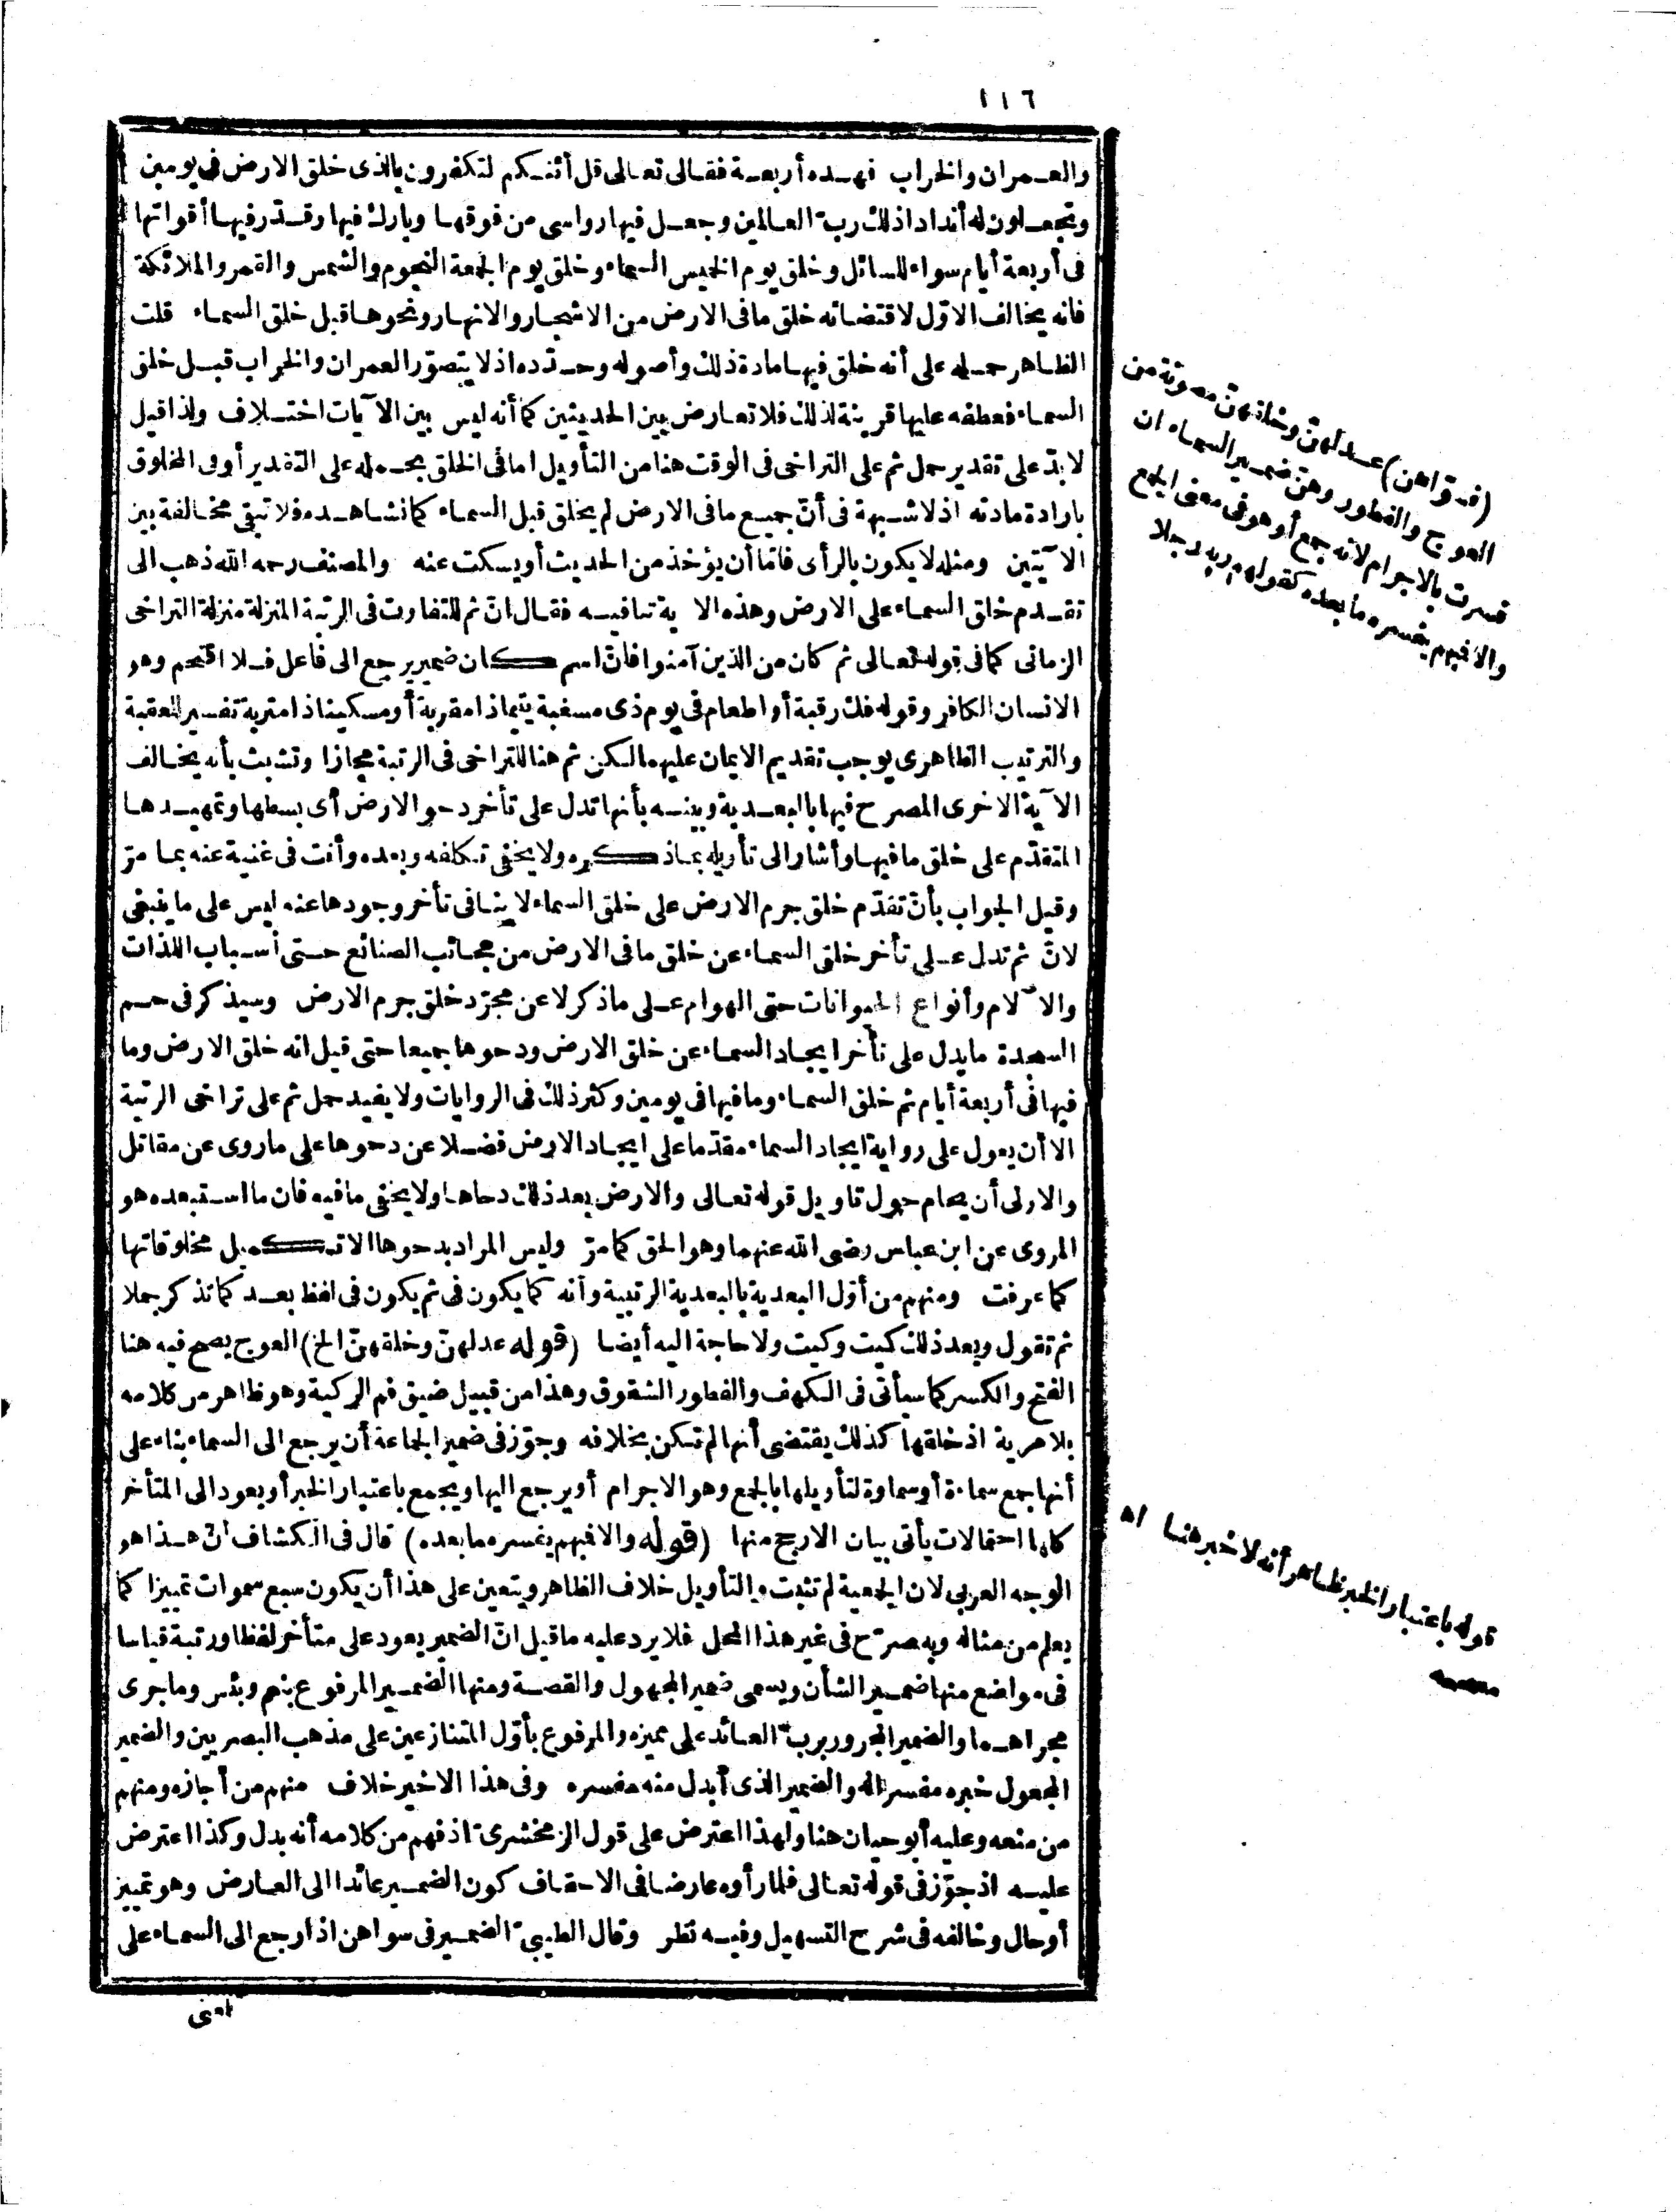 ١١٦
والعمران والخراب فهذه أربعة فقال تعالى قل أئنكم لتكفرون بالذى خلق الارض فى يومين
وتجعلون له أندادا ذلك رب العالمين وجعل فيها رواسى من فوقها وبارك فيها وقدّر فيها أقواتها
فى أربعة أيام سواء للسائل وخلق يوم الخميس السماء وخلق يوم الجمعة النجوم والشمس والقمر والملائكة
فانه يخالف الاوّل لاقتضائه خلق ما فى الارض من الاشجار والانهار ونحوها قبل خلق السماء قلت
الظاهر حمله على أنه خلق فيها مادة ذلك وأصوله وحدّده اذ لا يتصوّر العمران والخراب قبل خلق
السماء فعطفه عليها قرينة لذلك فلا تعارض بين الحديثين كما أنه ليس بين الآيات اختلاف ولذا قيل
لا بدّ على تقدير حمل ثم على التراخى فى الوقت هنا من التأويل اما فى الخلق بحمله على التقدير أو فى المخلوق
بارادة مادته اذ لا شبهة فى أنّ جميع ما فى الارض لم يخلق قبل السماء كما نشاهده فلا تبقى مخالفة بين
الآيتين ومثله لا يكون بالرأى فامّا أن يؤخذ من الحديث أو يسكت عنه والمصنف رحمه الله ذهب الى
تقدم خلق السماء على الارض وهذه الآية تنافيه فقال انّ ثم للتفاوت فى الرتبة المنزلة منزلة التراخى
الزمانى كما فى قوله تعالى ثم كان من الذين آمنوا فانّ اسم كان ضمير يرجع الى فاعل فلا اقتحم وهو
الانسان الكافر وقوله فك رقبة أو اطعام فى يوم ذى مسغبة يتيما ذا مقربة أو مسكينا ذا متربة تفسير للعقبة
والترتيب الظاهرى يوجب تقديم الايمان عليهما لكن ثم هنا للتراخى فى الرتبة مجازا وتشبث بأنه يخالف
الآية الاخرى المصرح فيها بالبعدية وبينه بأنها تدل على تأخر دحو الارض أى بسطها وتمهيدها
المتقدّم على خلق ما فيها وأشار الى تأويله بما ذكره ولا يخفى تكلفه وبعده وأنت فى غنية عنه بما مرّ
وقيل الجواب بأنّ تقدّم خلق جرم الارض على خلق السماء لا ينافى تأخر وجودها عنه ليس على ما ينبغى
لانّ ثم تدل على تأخر خلق السماء عن خلق ما فى الارض من عجائب الصنائع حتى أسباب اللذات
والآلام وأنواع الحيوانات حتى الهوام على ما ذكر لا عن مجرّد خلق جرم الارض وسيذكر فى حم
السجدة ما يدل على تأخر ايجاد السماء عن خلق الارض ودحوها جميعا حتى قيل انه خلق الارض وما
فيها فى أربعة أيام ثم خلق السماء وما فيها فى يومين وكثر ذلك فى الروايات ولا يفيد حمل ثم على تراخى الرتبة
الا أن يعول على رواية ايجاد السماء مقدّما على ايجاد الارض فضلا عن دحوها على ما روى عن مقاتل
والاولى أن يحام حول تأويل قوله تعالى والارض بعد ذلك دحاها ولا يخفى ما فيه فان ما استبعده هو
المروى عن ابن عباس رضى الله عنهما وهو الحق كما مرّ وليس المراد بدحوها الا تكميل مخلوقاتها
كما عرفت ومنهم من أوّل البعدية بالبعدية الرتبية وأنه كما يكون فى ثم يكون فى لفظ بعد كما تذكر جملا
ثم تقول وبعد ذلك كيت وكيت ولا حاجة اليه أيضا (قوله عدلهنّ وخلقهنّ الخ) العوج يصح فيه هنا
الفتح والكسر كما سيأتى فى الكهف والفطور الشقوق وهذا من قبيل ضيق فم الركية وهو ظاهر من كلامه
بلا مرية اذ خلقها كذلك يقتضى أنها لم تكن بخلافه وجوّز فى ضمير الجماعة أن يرجع الى السماء بناء على
أنها جمع سماءة أو سماوة لتأويلها بالجمع وهو الاجرام أو يرجع اليها ويجمع باعتبار الخبر أو يعود الى المتأخر
كلها احتمالات يأتى بيان الارجح منها (قوله والا فبهم يفسره ما بعده) قال فى الكشاف انّ هذا هو
الوجه العربى لان الجمعية لم تثبت والتأويل خلاف الظاهر ويتعين على هذا أن يكون سبع سموات تمييزا كما
يعلم من مثاله وبه صرّح فى غير هذا المحل فلا يرد عليه ما قيل انّ الضمير يعود على متأخر لفظا ورتبة قياسا
فى مواضع منها ضمير الشأن ويسمى ضمير المجهول والقصة ومنها الضمير المرفوع بنعم وبئس وما جرى
مجراهما والضمير المجرور برب العائد على مميزه والمرفوع بأوّل المتنازعين على مذهب البصريين والضمير
المجعول خبره مفسرا له والضمير الذى أبدل منه مفسره وفى هذا الاخير خلاف منهم من أجازه ومنهم
من منعه وعليه أبو حيان هنا ولهذا اعترض على قول الزمخشرىّ اذ فهم من كلامه أنه بدل وكذا اعترض
عليه اذ جوّز فى قوله تعالى فلما رأوه عارضا فى الاحقاف كون الضمير عائدا الى العارض وهو تمييز
أو حال وخالفه فى شرح التسهيل وفيه نظر وقال الطيبىّ الضمير فى سواهن اذا رجع الى السماء على
(فسوّاهن) عدلهنّ وخلقهنّ مصونة من
العوج والفطور وهنّ ضمير السماء ان
فسرت بالاجرام لانه جمع أو هو فى معنى الجمع
والا فبهم يفسره ما بعده كقولهم ربه رجلا
قوله باعتبار الخبر ظاهر أنه لا خبر هنا اه
مصححه